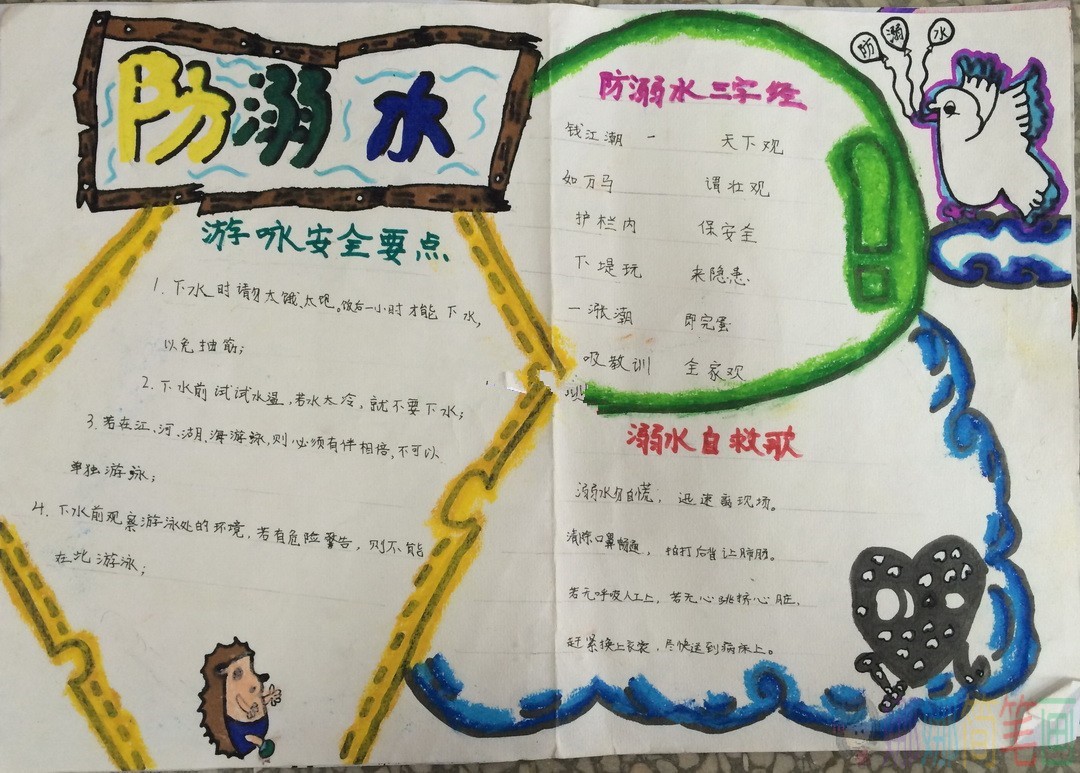 防溺水
游泳安全要点
1. 下水时请勿太饿、太饱。饭后一小时才能下水,
以免抽筋;
2. 下水前试试水温,若水太冷,就不要下水;
3. 若在江、河、湖、海游泳,则必须有伴相倍,不可以
单独游泳;
4. 下水前观察游泳处的环境,若有危险警告,则不能
在北游泳;
防溺水三字经
钱江潮一 天下观
如万马 谓壮观
护栏内 保安全
下堤玩 来隐患
一涨潮 即完蛋
吸教训 全家欢
溺水自救歌
溺水勿自慌,迅速离现场。
清除口鼻畅通,拍打后背让肺肠。
若无呼吸人工上,若无心跳挤心脏,
赶紧换上衣裳,尽快送到病床上。
防溺水